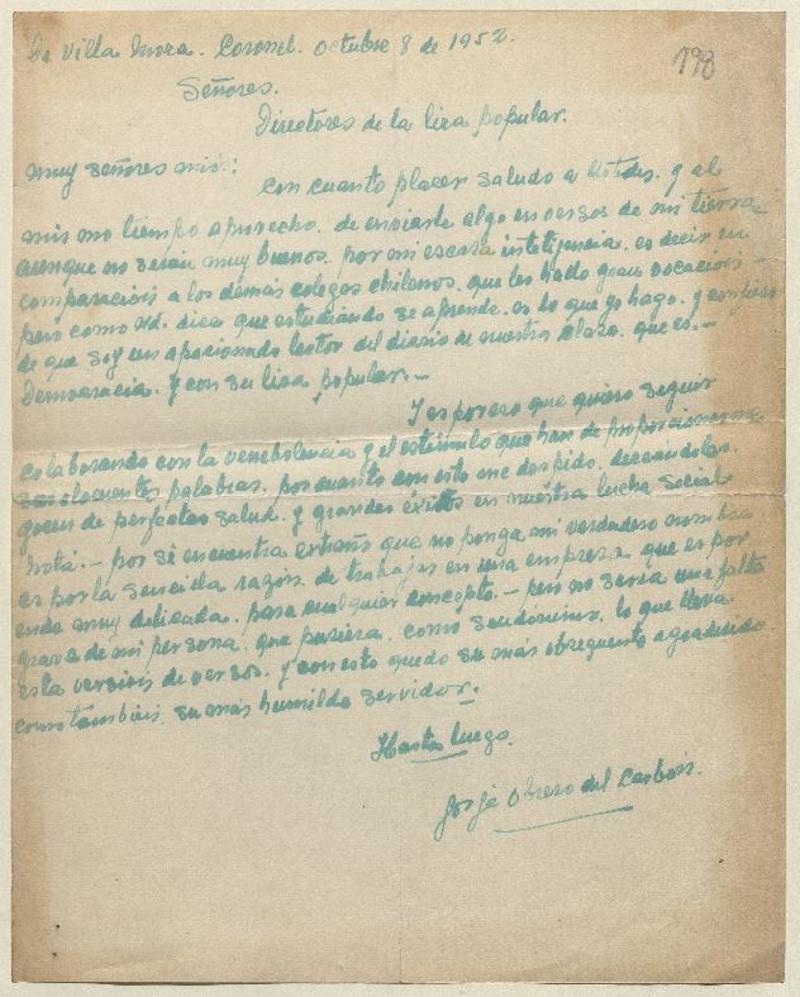 De Villa Mora. Coronel. octubre 8 de 1952.
198
Señores.
Directores de la lira popular.
muy señores mios:
con cuanto placer saludo a Ustedes. y al
mismo tiempo aprovecho. de enviarle algo en versos de mi tierra
aunque no serán muy buenos. por mi escasa inteligencia. es decir en
comparación a los demás colegas chilenos. que les hallo gran vocación -
pero como ud. dice que estudiando se aprende. es lo que yo hago. y
de que soy un apacionado lector del diario de nuestra clase. que es. -
Democracia. y con su lira popular. -
Y es por eso que quiero seguir
colaborando con la venebolencia y el estimulo que han de proporcionarme
sus elocuentes palabras. por cuanto con esto me despido. deceándoles
gocen de perfectas salud. y grandes éxitos en nuestra lucha social
nota. - por si encuentra extraño que no ponga mi verdadero nombre
es por la sencilla razón. de trabajar en una empresa que es por
ende muy delicada. para cualquier concepto. - pero no sería una falta
grave de mi persona. que pusiera. como seudónimo. lo que lleva
esta versión de versos. y con esto quedo su más obsequente agradecido.
como también. su más humilde servidor.
Hasta luego.
José Obrero del Carbón.